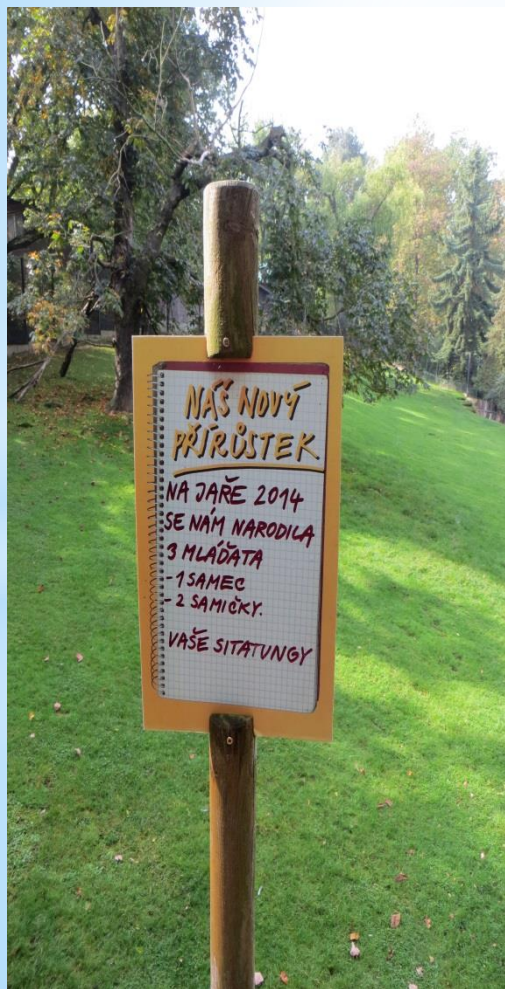 NÁŠ NOVÝ
PŘÍRŮSTEK
NA JAŘE 2014
SE NÁM NARODILA
3 MLÁĎATA
-1 SAMEC
-2 SAMIČKY.
VAŠE SITATUNGY